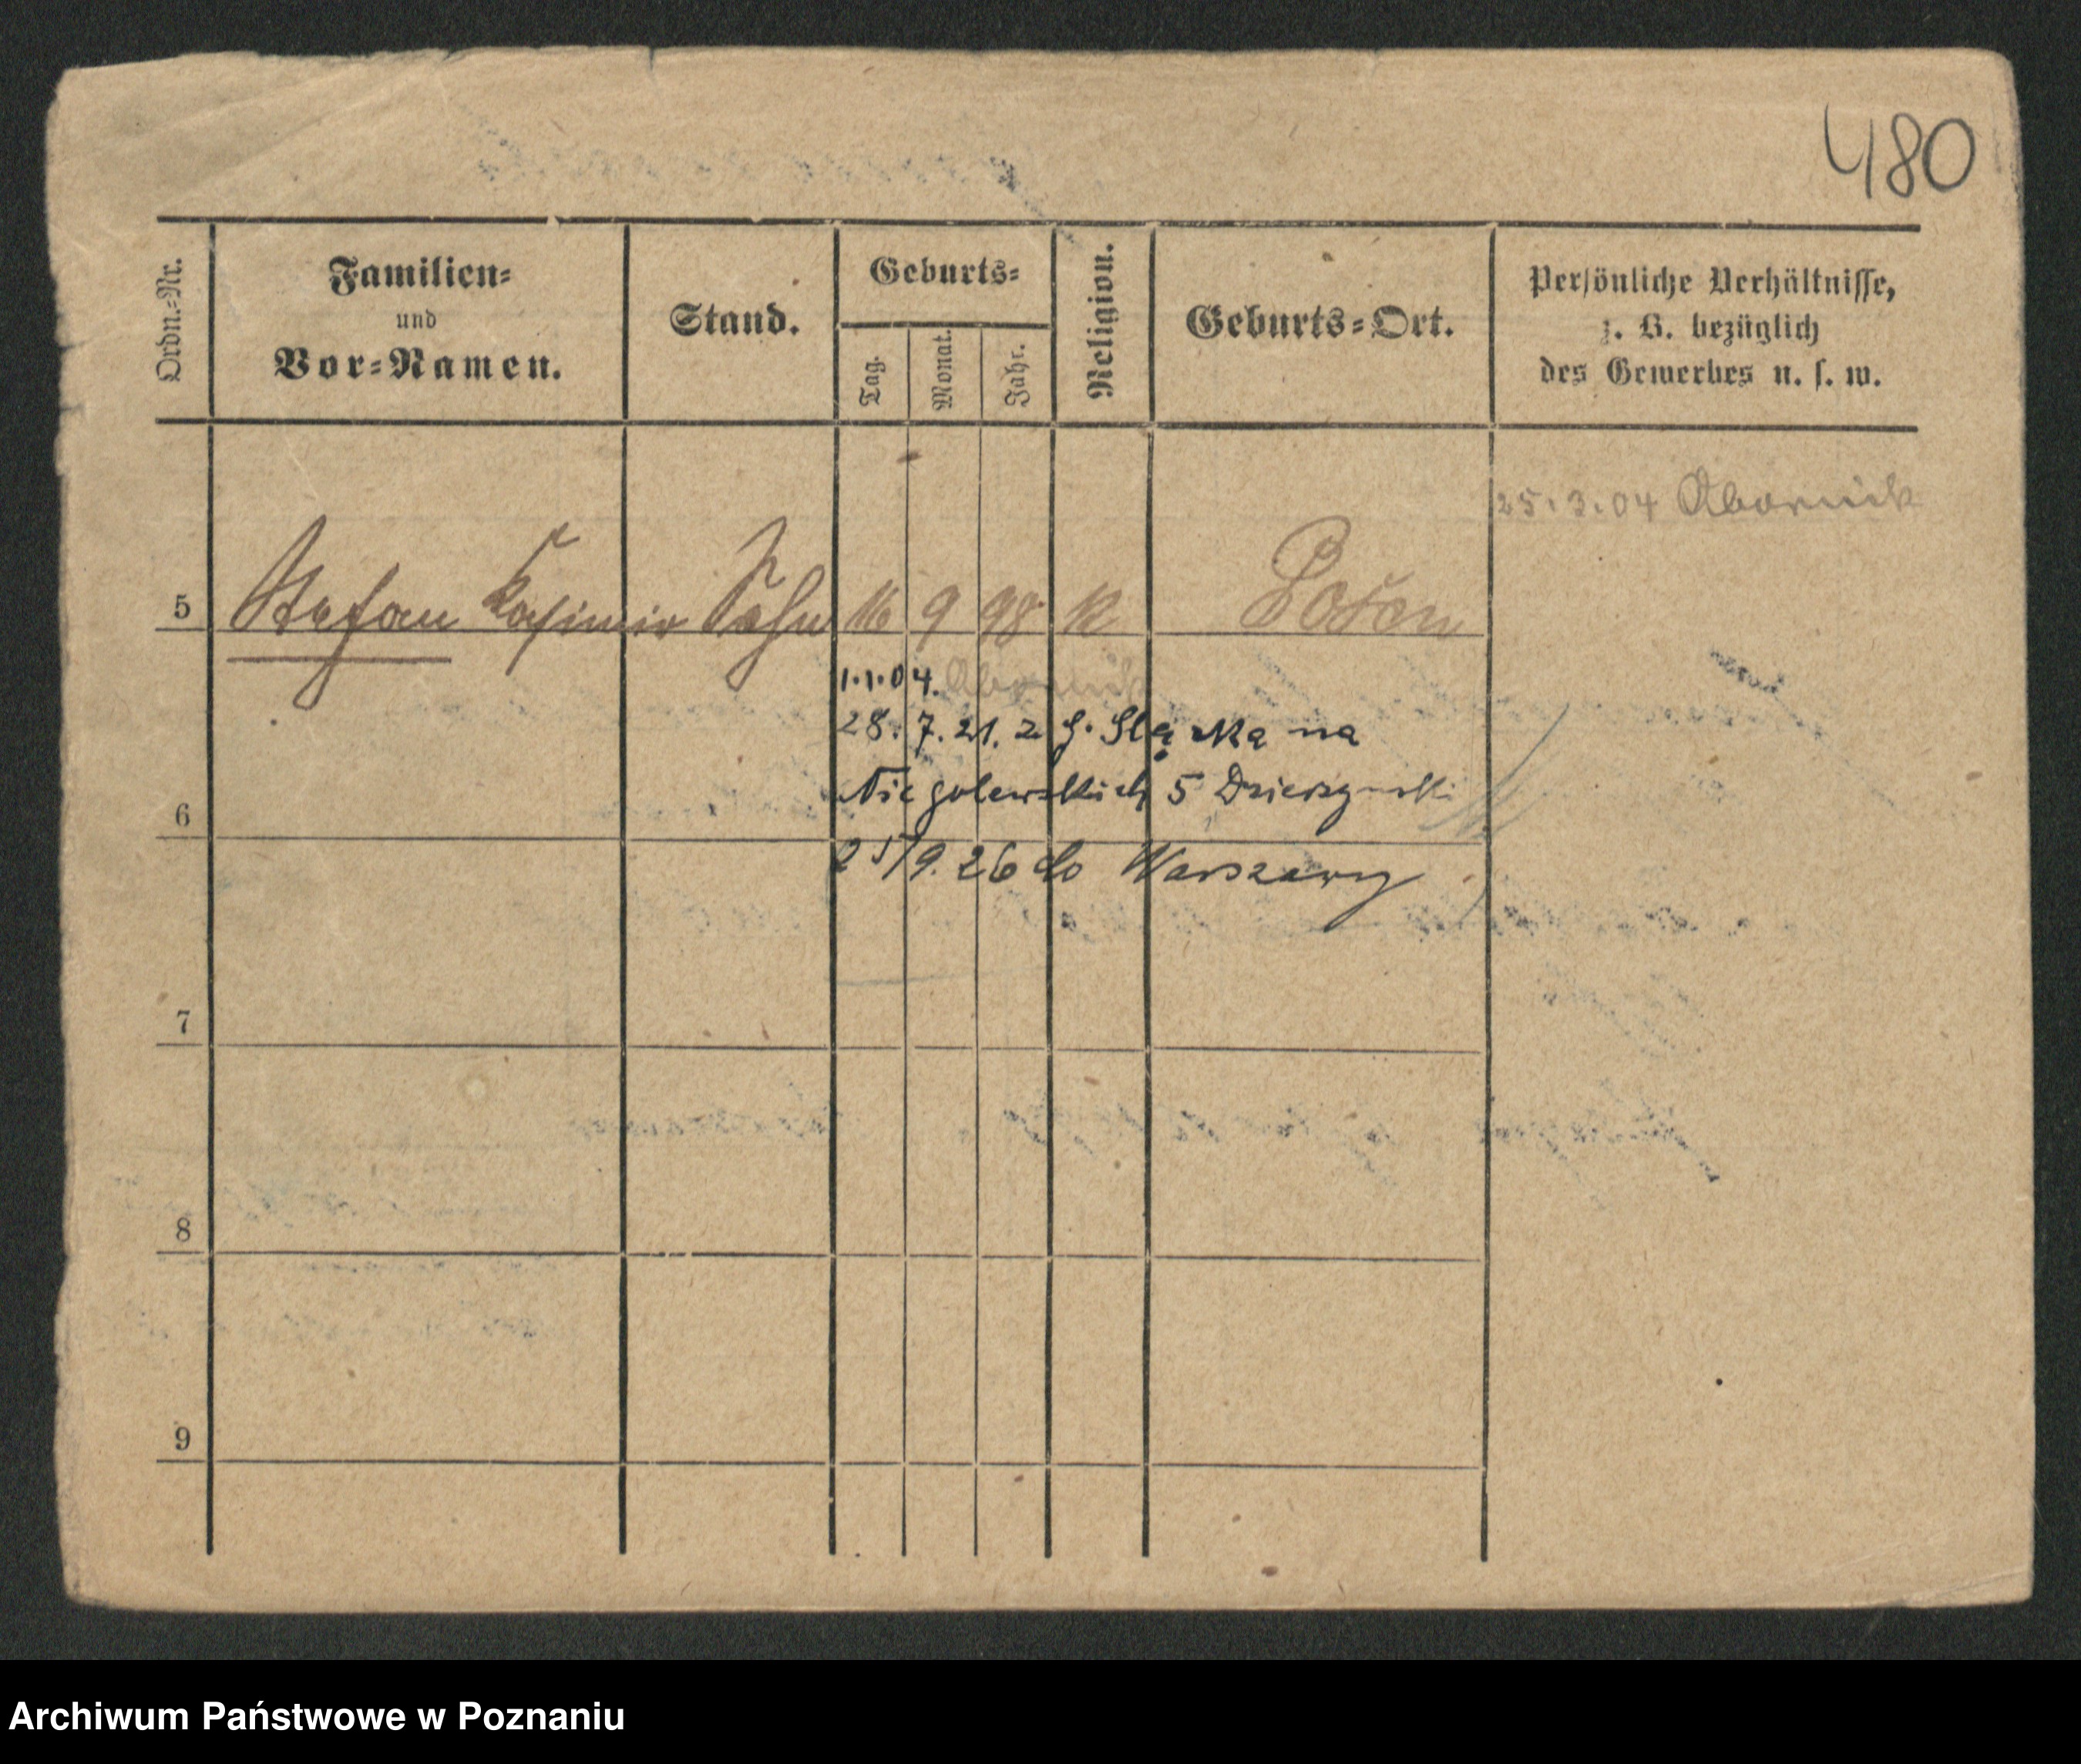 480
Ordn.-Nr.
Familien-
und
Vor-Namen.
Stand.
Geburts-
Tag.
Monat.
Jahr.
Religion.
Geburts-Ort.
Persönliche Verhältnisse,
z. B. bezüglich
des Gewerbes u. s. w.
25.3.04 Obornik
5 Stefan Kasimir Sohn 16 9 98 K Posen
1.1.04. Obornik
28.7.21. z G. Śląska na
Niegolewskich 5 Dzierzynski
6
25/9.26 do Warszawy
7
8
9
Archiwum Państwowe w Poznaniu